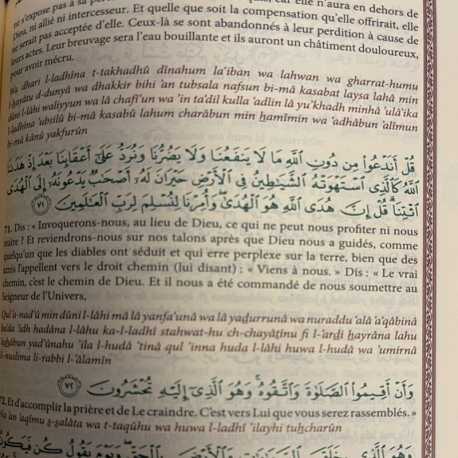 ne s'expose pas à sa
car elle n'aura en dehors de
Dieu, ni allié ni intercesseur. Et quelle que soit la compensation qu'elle offrirait, elle
ne serait pas acceptée d'elle. Ceux-là se sont abandonnés à leur perdition à cause de
leurs actes. Leur breuvage sera l'eau bouillante et ils auront un châtiment douloureux,
pour avoir mécru.
dhari l-ladhîna t-takhadhû dînahum la'iban wa lahwan wa gharrat-humu
l-hayâtu d-dunyâ wa dhakkir bihî 'an tubsala nafsun bi-mâ kasabat laysa lahâ min
dûni l-lâhi waliyyun wa lâ chafî'un wa 'in ta'dil kulla 'adlin lâ yu'khadh minhâ 'ulâ'ika
l-ladhîna 'ubsilû bi-mâ kasabû lahum charâbun min hamîmin wa 'adhâbun 'alîmun
bi-mâ kânû yakfurûn
قُلْ أَنَدْعُوا مِن دُونِ اللَّهِ مَا لَا يَنفَعُنَا وَلَا يَضُرُّنَا وَنُرَدُّ عَلَىٰ أَعْقَابِنَا بَعْدَ إِذْ هَدَىٰنَا
اللَّهُ كَالَّذِي اسْتَهْوَتْهُ الشَّيَاطِينُ فِي الْأَرْضِ حَيْرَانَ لَهُ أَصْحَابٌ يَدْعُونَهُ إِلَى الْهُدَى
ائْتِنَا ۗ قُلْ إِنَّ هُدَى اللَّهِ هُوَ الْهُدَىٰ ۖ وَأُمِرْنَا لِنُسْلِمَ لِرَبِّ الْعَالَمِينَ ﴿٧١﴾
71. Dis : « Invoquerons-nous, au lieu de Dieu, ce qui ne peut nous profiter ni nous
nuire ? Et reviendrons-nous sur nos talons après que Dieu nous a guidés, comme
quelqu'un que les diables ont séduit et qui erre perplexe sur la terre, bien que des
amis l'appellent vers le droit chemin (lui disant) : « Viens à nous. » Dis : « Le vrai
chemin, c'est le chemin de Dieu. Et il nous a été commandé de nous soumettre au
Seigneur de l'Univers,
Qul 'a-nad'û min dûni l-lâhi mâ lâ yanfa'unâ wa lâ yadurrunâ wa nuraddu 'alâ 'a'qâbinâ
ba'da 'idh hadâna l-lâhu ka-l-ladhî stahwat-hu ch-chayâtînu fî l-'ardi hayrâna lahu
'ashâbun yad'ûnahu 'ila l-hudâ 'tinâ qul 'inna huda l-lâhi huwa l-hudâ wa 'umirnâ
li-nuslima li-rabbi l-'âlamîn
وَأَنْ أَقِيمُوا الصَّلَاةَ وَاتَّقُوهُ ۚ وَهُوَ الَّذِي إِلَيْهِ تُحْشَرُونَ ﴿٧٢﴾
72. Et d'accomplir la prière et de Le craindre. C'est vers Lui que vous serez rassemblés. »
Wa 'an 'aqîmu s-salâta wa t-taqûhu wa huwa l-ladhî 'ilayhi tuhcharûn
وَهُوَ الَّذِي خَلَقَ السَّمَاوَاتِ وَالْأَرْضَ بِالْحَقِّ ۖ وَيَوْمَ يَقُولُ كُن فَيَكُونُ